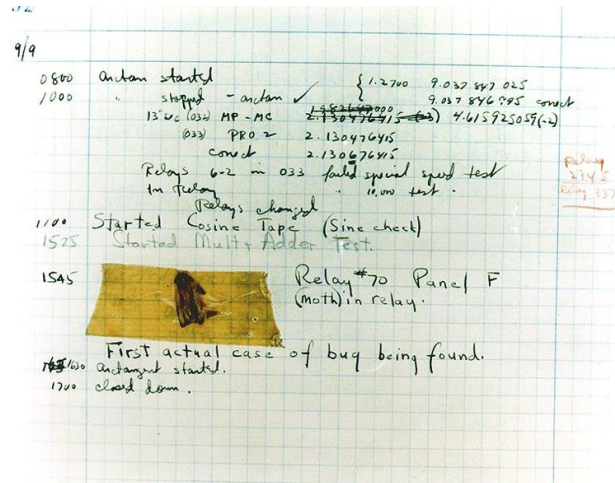 9/9
0800 antan started
1000 " stopped - antan ✓ { 1.2700 9.037 847 025
9.037 846 995 conect
13"uc (032) MP - MC 2.130476415 (-3) 4.615925059(-2)
(033) PRO 2 2.130476415
conect 2.130676415
Relays 6-2 in 033 failed special speed test
In Relay " 10.000 test .
Relay
Relay 337
Relays changed
1100 Started Cosine Tape (Sine check)
1525 Started Mult + Adder Test.
1545 Relay #70 Panel F
(moth) in relay.
First actual case of bug being found.
1630 antangent started.
1700 closed down .